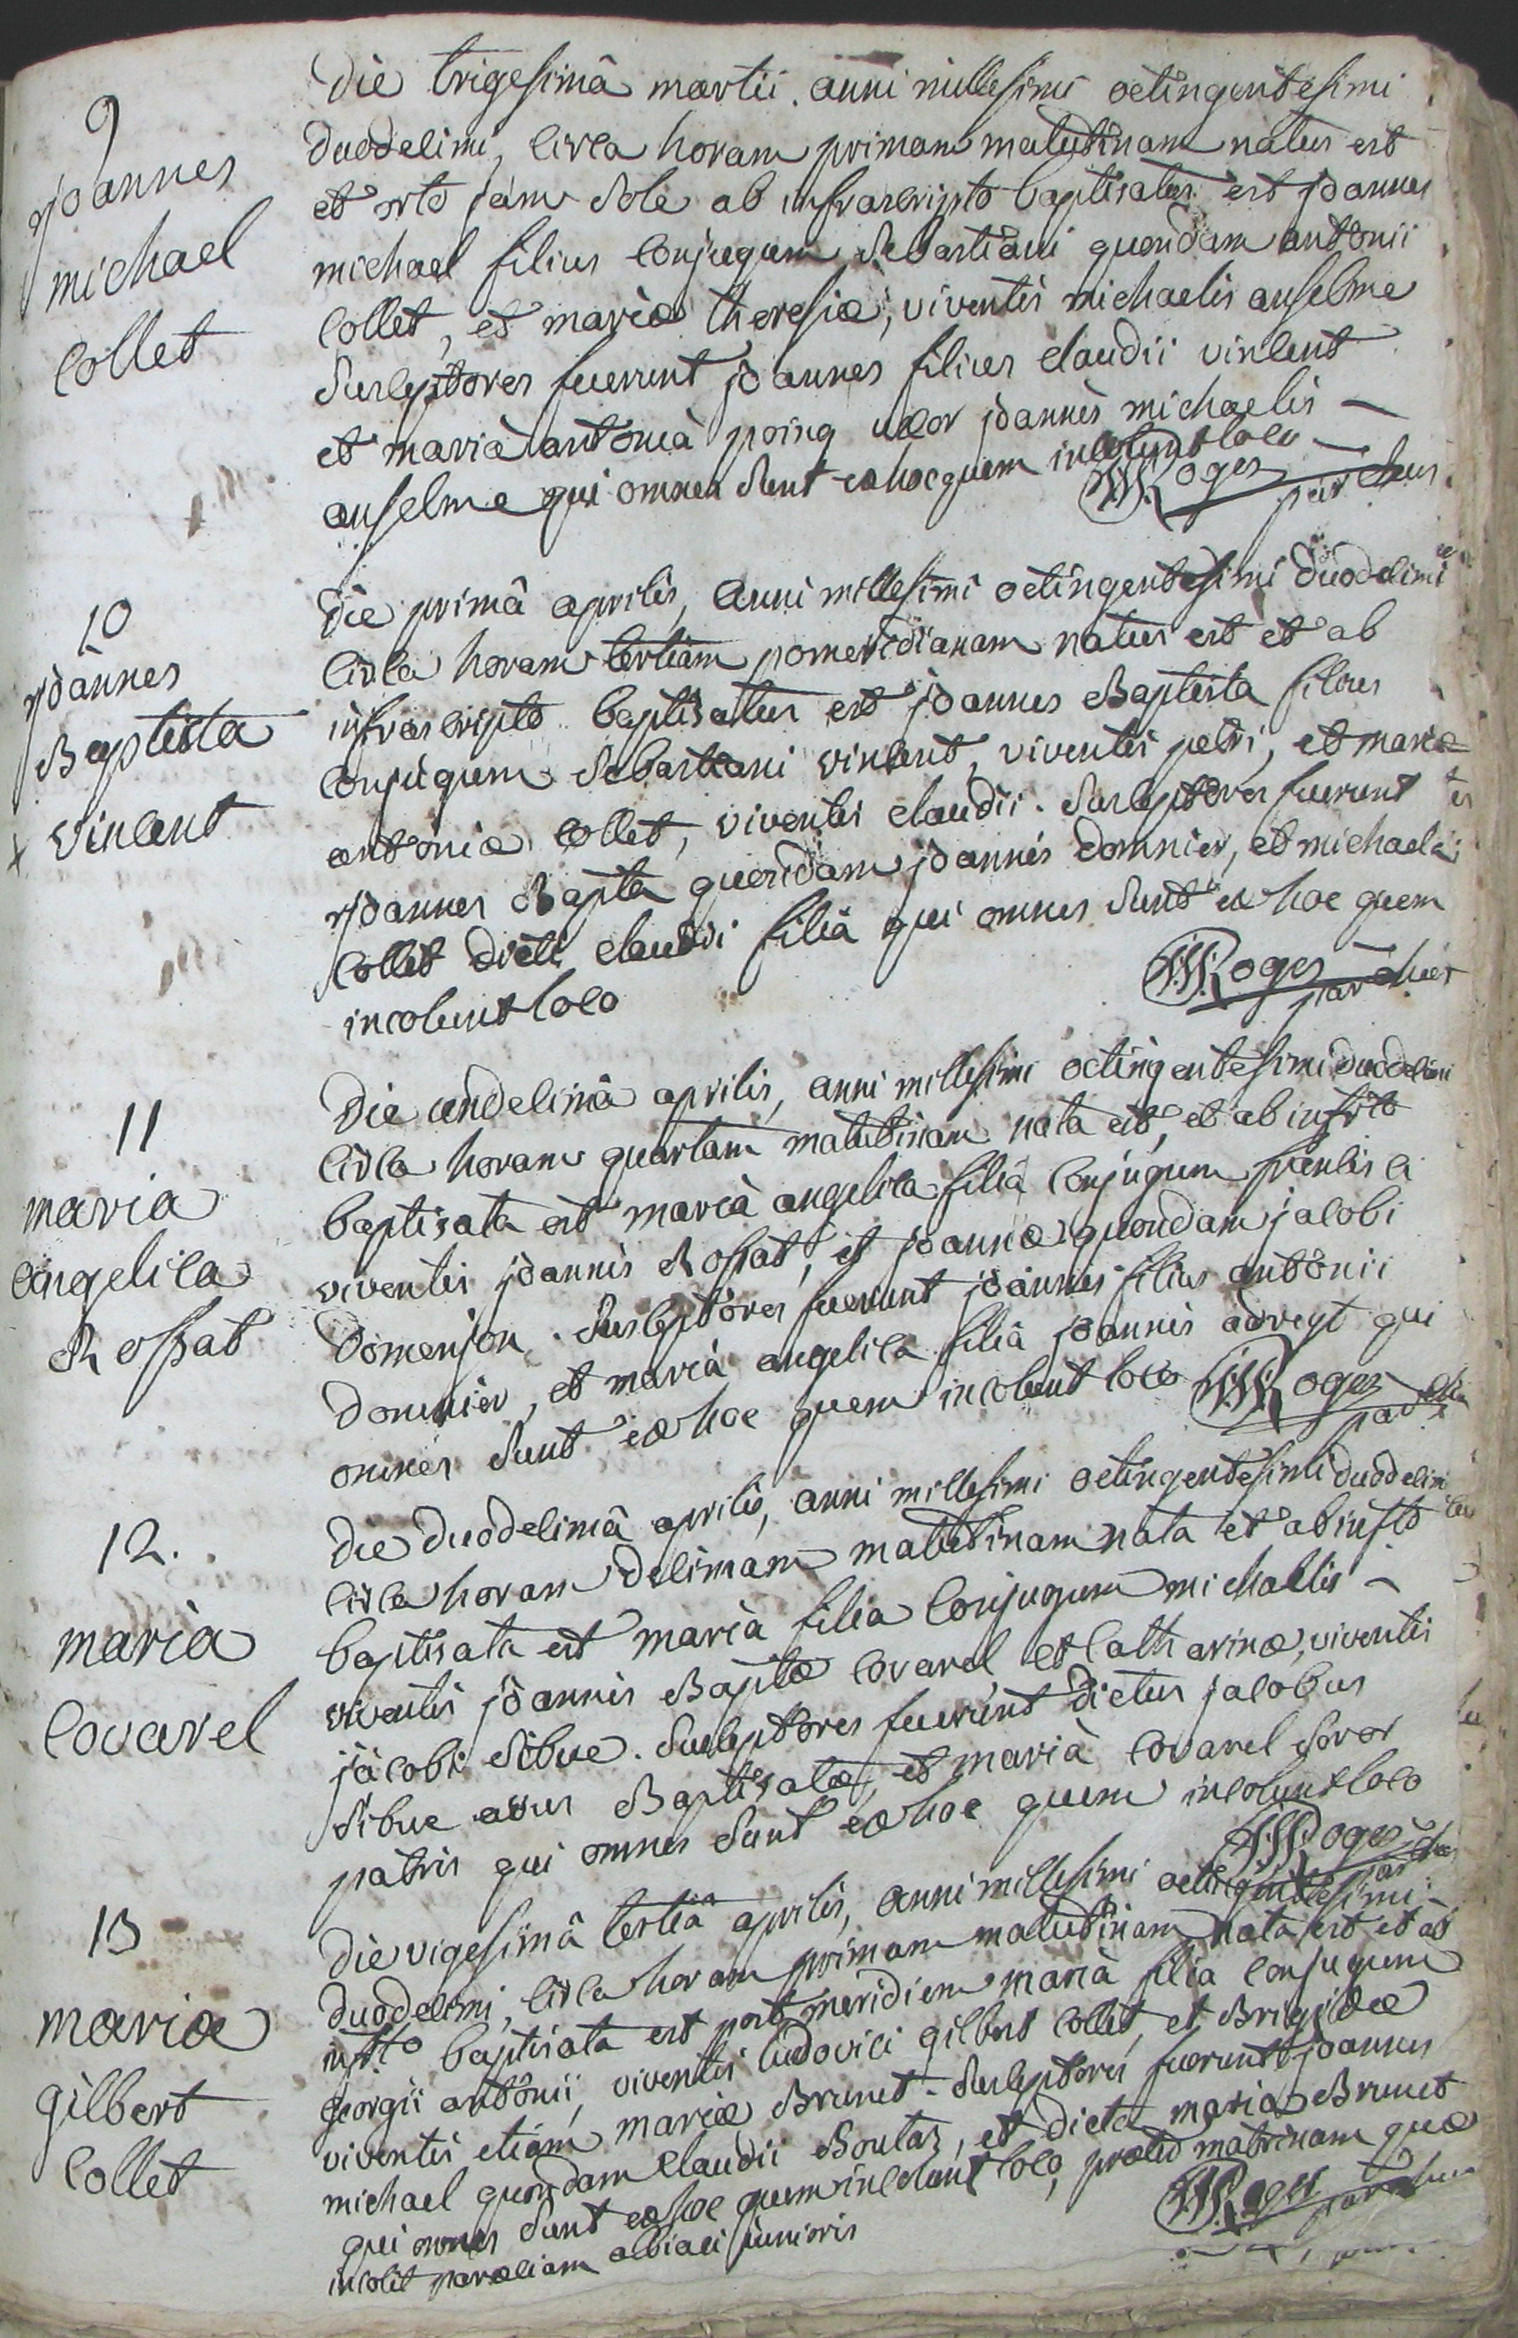 9
joannes
michael
collet
Die trigesimâ martii anni millesimi octingentesimi
duodecimi, circa horam primam matutinam natus est
et orto jam sole ab infrascripto baptisatus est joannes
michael filius conjugum sebastiani quondam antonii
collet, et mariæ theresiæ, viventis michaelis anselme
susceptores fuerunt joannes filius claudii vincent
et maria antonia poing uxor joannis michaelis
anselme qui omnes sunt ex hoc quem incolunt loco
Roges parochus
10
joannes
Baptista
vincent
Die primâ aprilis, anni millesimi octingentesimi duodecimi
circa horam tertiam pomeridianam natus est et ab
infrascripto baptisatus est joannes Baptista filius
conjugum sebastiani vincent, viventis petri, et mariæ
antoniæ collet, viventis claudii. susceptores fuerunt
joannes Bapta quondam joannis domnier, et michaela
collet dicti claudii filia qui omnes sunt ex hoc quem
incolunt loco
Roges parochus
11
maria
angelica
Rossat
Die undecimâ aprilis, anni millesimi octingentesimi duodecimi
circa horam quartam matutinam nata est, et ab infrto
baptisata est maria angelica filia conjugum francisci
viventis joannis Rossat, et joannæ quondam jacobi
Domenjon. susceptores fuerunt joannes filius antonii
domnier, et maria angelica filia joannis adregt qui
omnes sunt ex hoc quem incolunt loco
Roges parochus
12.
maria
covarel
Die duodecimâ aprilis, anni millesimi octingentesimi duodecimi
circa horam decimam matutinam nata et ab infto
baptisata est maria filia conjugum michaelis
viventis joannis Baptæ covarel, et catharinæ, viventis
jacobi sibue. susceptores fuerunt dictus jacobus
sibue avus Baptisatæ, et maria covarel soror
patris qui omnes sunt ex hoc quem incolunt loco
Roges parochus
13
maria
gilbert
collet
Die vigesimâ tertiâ aprilis, anni millesimi octingentesimi
duodecimi, circa horam primam matutinam nata est et ab
infto baptisata est post meridiem maria filia conjugum
georgii antonii, viventis ludovici gilbert collet, et Brigidæ
viventis etiam mariæ Brunet. susceptores fuerunt joannes
michael quondam claudii Boutaz, et dicta maria Brunet
qui omnes sunt ex hoc quem incolunt loco, præter matrinam quæ
incolit parœciam albiaci junioris
Roges parochus